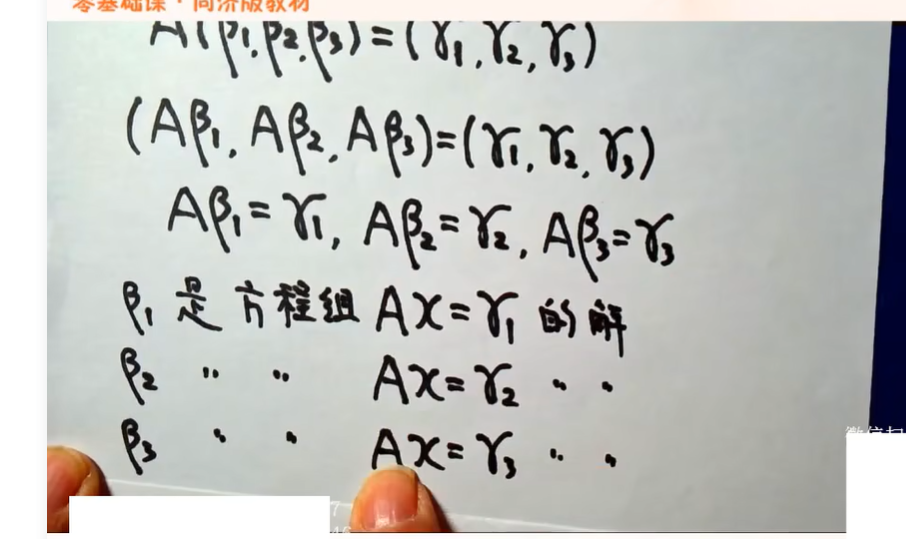 零基础课·同济版教材
A(β₁,β₂,β₃)=(γ₁,γ₂,γ₃)
(Aβ₁,Aβ₂,Aβ₃)=(γ₁,γ₂,γ₃)
Aβ₁=γ₁,Aβ₂=γ₂,Aβ₃=γ₃
β₁是方程组Ax=γ₁的解
β₂ 〃 〃 Ax=γ₂ 〃 〃
β₃ 〃 〃 Ax=γ₃ 〃 〃
微信扫